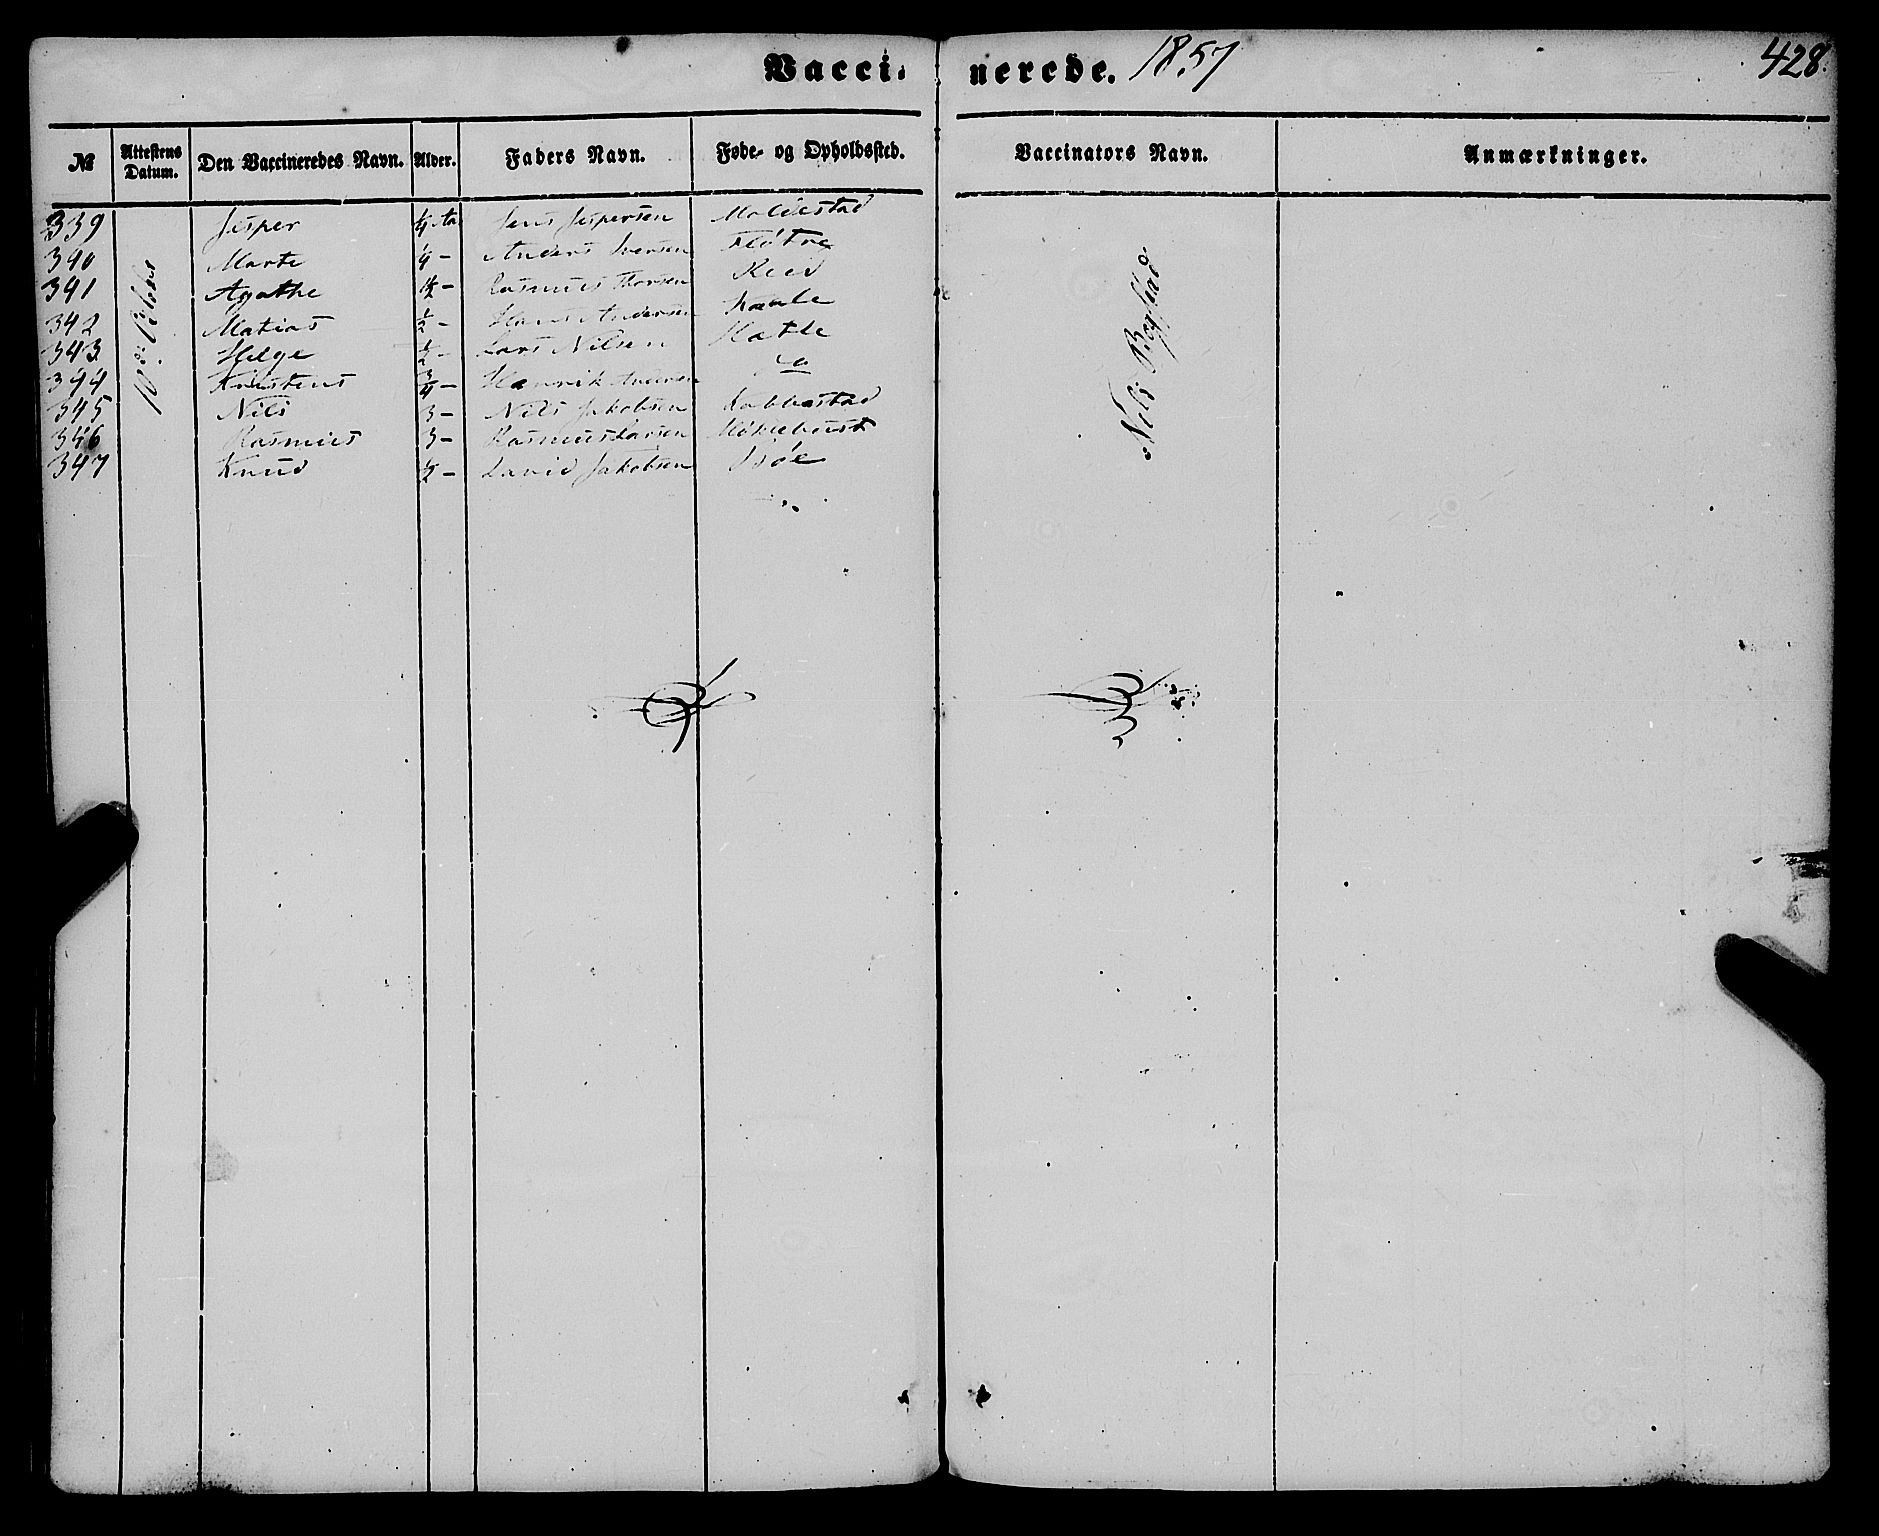 Vaccinerede. 1857
428.
№ Attestens Datum. Den Vaccineredes Navn. Alder. Faders Navn. Føde- og Opholdssted. Vaccinators Navn. Anmærkninger.
339 Jesper 1/4 Aar Jens Jespersen Moldestad
340 Marte 1/4 - Anders Iversen Fløtre
341 Agathe 1/2 - Rasmus Thorsen Reed
342 Matias 1/2 - Hans Andersen
343 Helge 1/2 - Lars Nilsen
344 Kristens 3/4 - Henrik Andersen
345 Nils 3 - Nils Jakobsen Kobbestad
346 Rasmus 3 - Rasmus Larsen Myklebust
347 Knud 1/2 - David Jakobsen
10de Octobr
Nils Bogstad